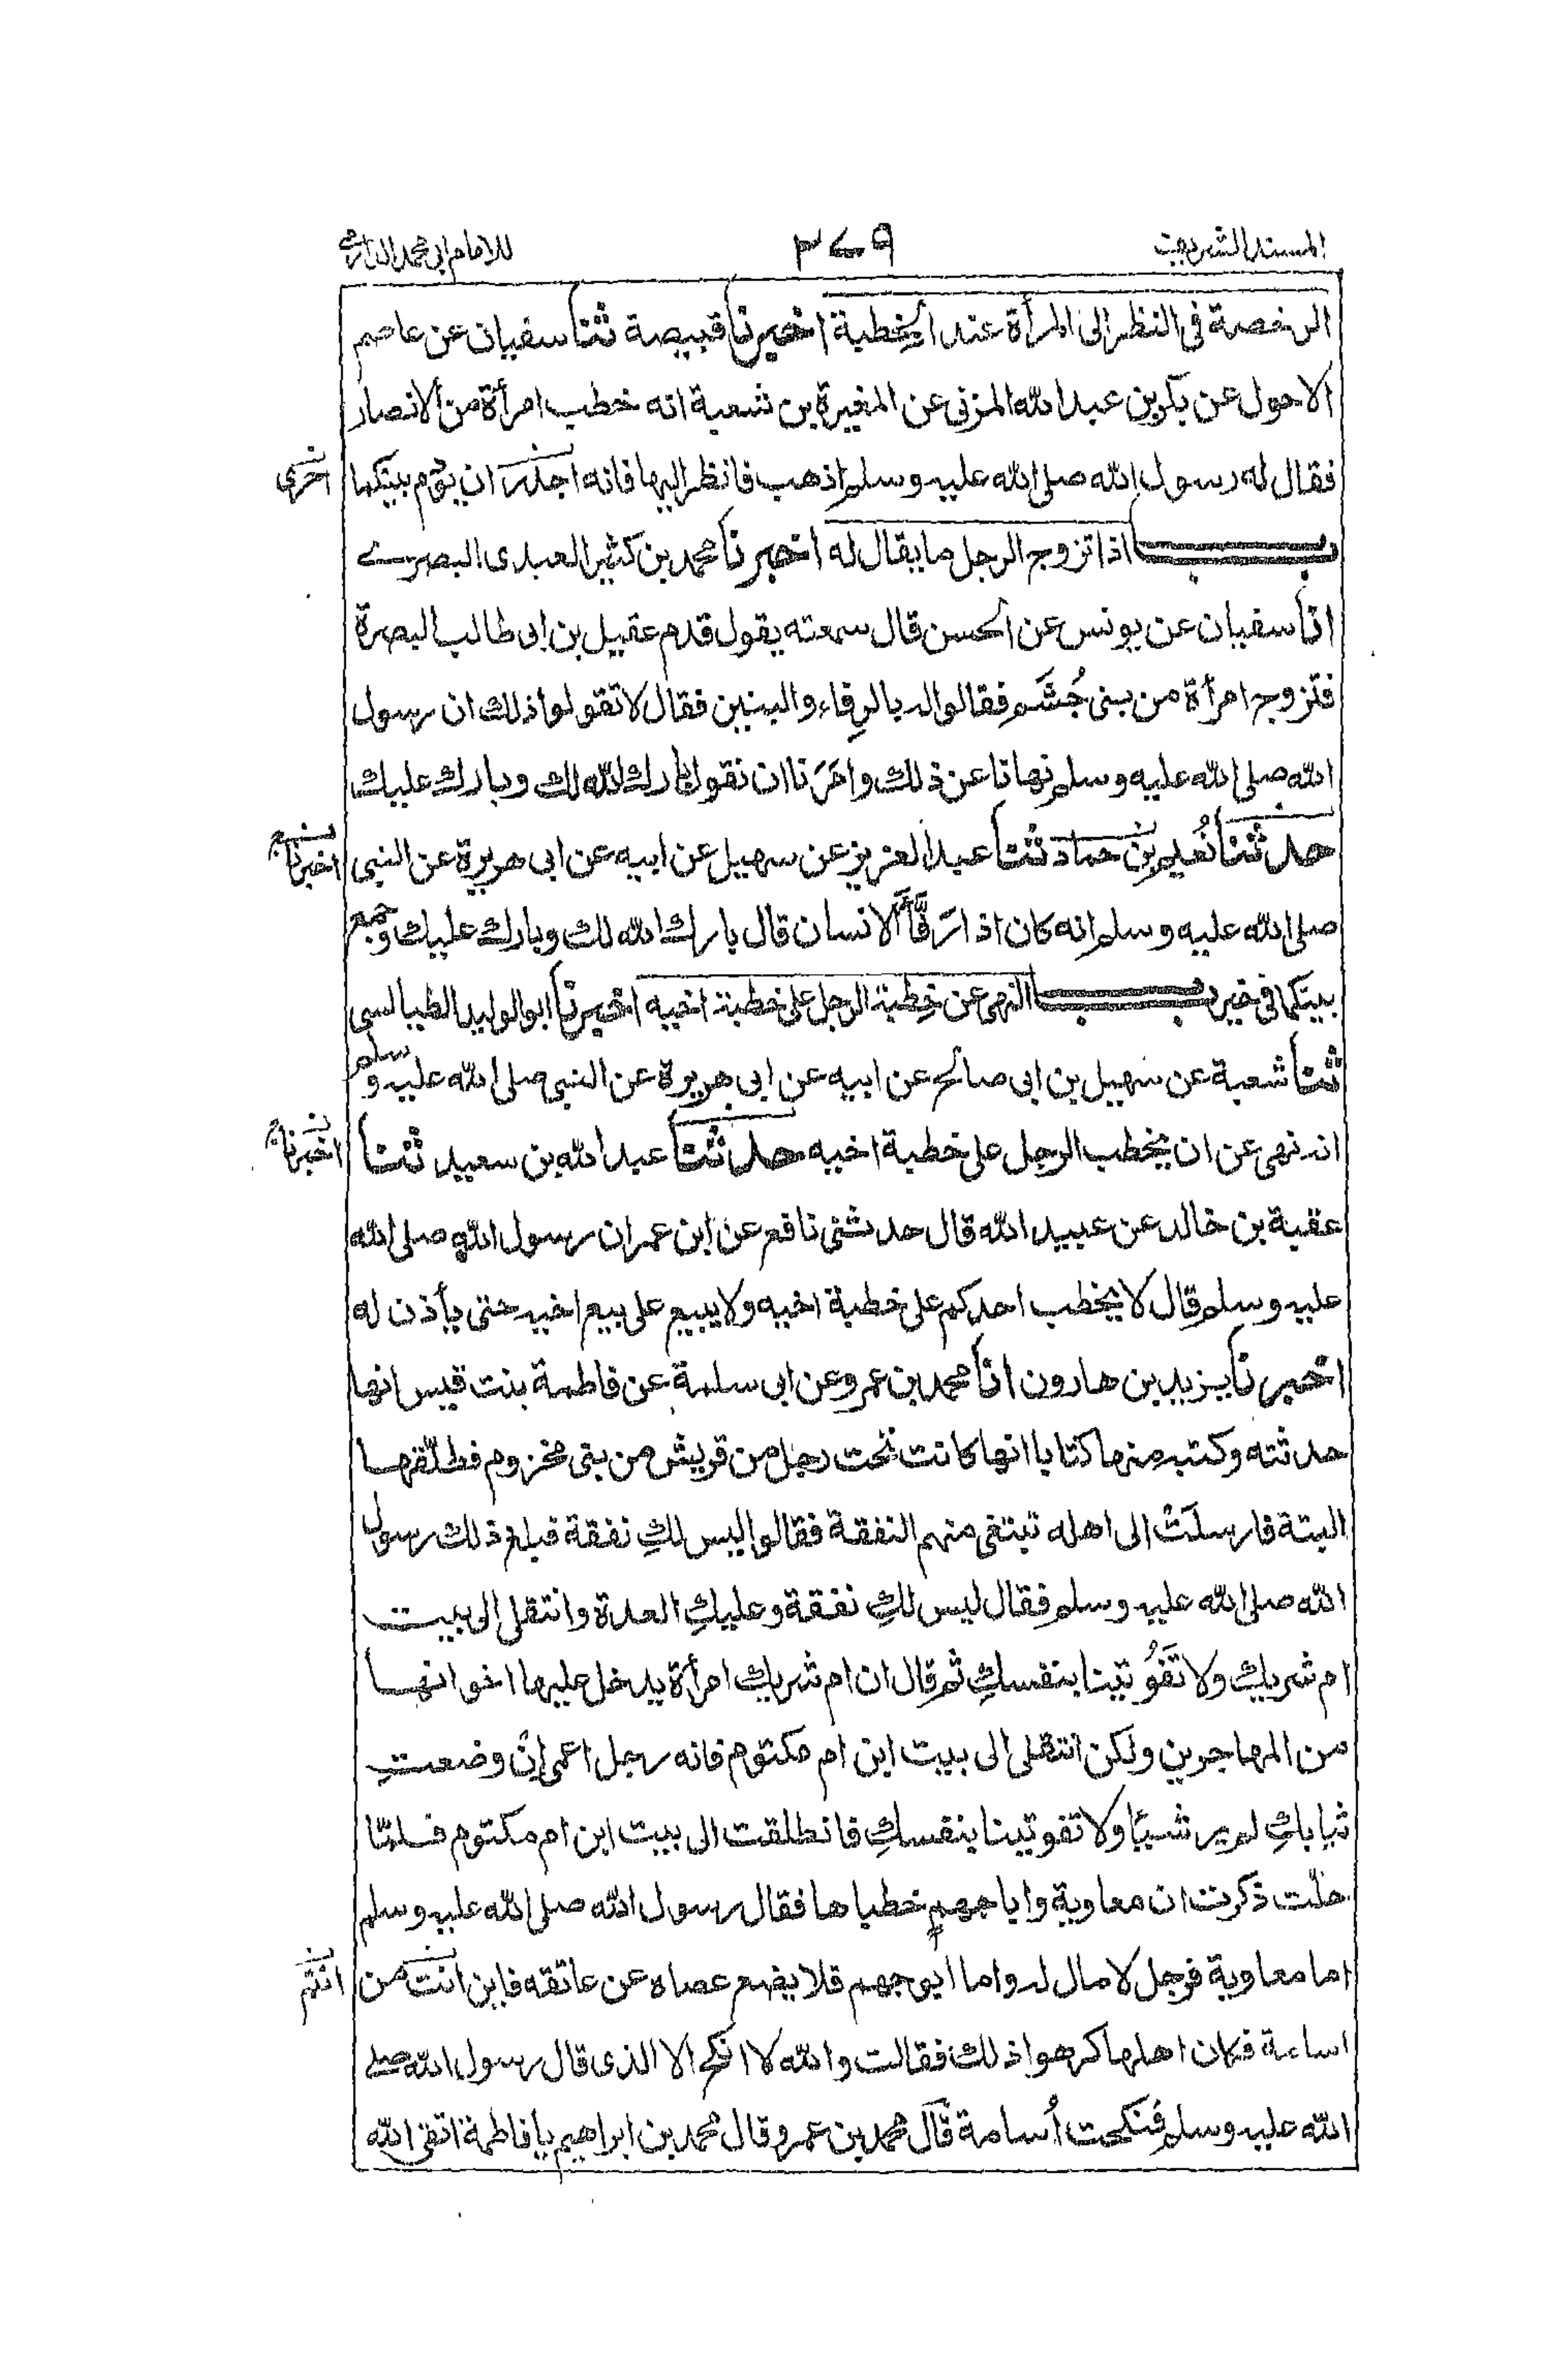 المسند الشريف ٢٧٩ للامام ابى محمد الدارمي
الرخصة فى النظر الى المرأة عند الخِطبة اخبرنا قبيصة ثنا سفيان عن عاصم
الاحول عن بكر بن عبد الله المزنى عن المغيرة بن شعبة انه خطب امرأة من الانصار
فقال له رسول الله صلى الله عليه وسلم اذهب فانظر اليها فانه اجدر ان يؤم بينكما
احرى
باب اذا تزوج الرجل ما يقال له اخبرنا محمد بن كثير العبدى البصرے
انا سفيان عن يونس عن الحسن قال سمعته يقول قدم عقيل بن ابى طالب البصرة
فتزوج امرأة من بنى جُشَم فقالوا له بالرِفاء والبنين فقال لا تقولوا ذلك ان رسول
الله صلى الله عليه وسلم نهانا عن ذلك وامَرَنا ان نقول بارك الله لك وبارك عليك
حدثنا نُعيم بن حماد ثنا عبد العزيز عن سهيل عن ابيه عن ابى هريرة عن النبى
اخبرنا
صلى الله عليه وسلم انه كان اذا رَفَّأَ الانسان قال بارك الله لك وبارك عليك وجمع
بينكما فى خير باب النهى عن خِطبة الرجل على خطبة اخيه اخبرنا ابو الوليد الطيالسى
ثنا شعبة عن سهيل بن ابى صالح عن ابيه عن ابى هريرة عن النبى صلى الله عليه وسلم
انه نهى عن ان يخطب الرجل على خطبة اخيه حدثنا عبد الله بن سعيد ثنا
اخبرنا
عقبة بن خالد عن عبيد الله قال حدثنى نافع عن ابن عمر ان رسول الله صلى الله
عليه وسلم قال لا يخطب احدكم على خطبة اخيه ولا يبيع على بيع اخيه حتى يأذن له
اخبرنا يزيد بن هارون انا محمد بن عمرو عن ابى سلمة عن فاطمة بنت قيس انها
حدثته وكتبه منها كتابا انها كانت تحت رجل من قريش من بنى مخزوم فطلّقها
البتة فارسلَتْ الى اهله تبتغى منهم النفقة فقالوا ليس لكِ نفقة فبلغ ذلك رسول
الله صلى الله عليه وسلم فقال ليس لكِ نفقة وعليكِ العدة وانتقلى الى بيت
ام شريك ولا تَفُوتينا بنفسكِ ثم قال ان ام شريك امرأة يدخل عليها اخوانها
من المهاجرين ولكن انتقلى الى بيت ابن ام مكتوم فانه رجل اعمى اِنْ وضعتِ
ثيابكِ لم ير شيئا ولا تفوتينا بنفسكِ فانطلقت الى بيت ابن ام مكتوم فلمّا
حلّت ذكرت ان معاوية وابا جهمٍ خطباها فقال رسول الله صلى الله عليه وسلم
اما معاوية فرجل لا مال له واما ابو جهم فلا يضع عصاه عن عاتقه فاين انت من
انتم
اسامة فكان اهلها كرهوا ذلك فقالت والله لا انكح الا الذى قال رسول الله صلى
الله عليه وسلم فنكحت اُسامة قال محمد بن عمرو قال محمد بن ابراهيم يا فاطمة اتقى الله